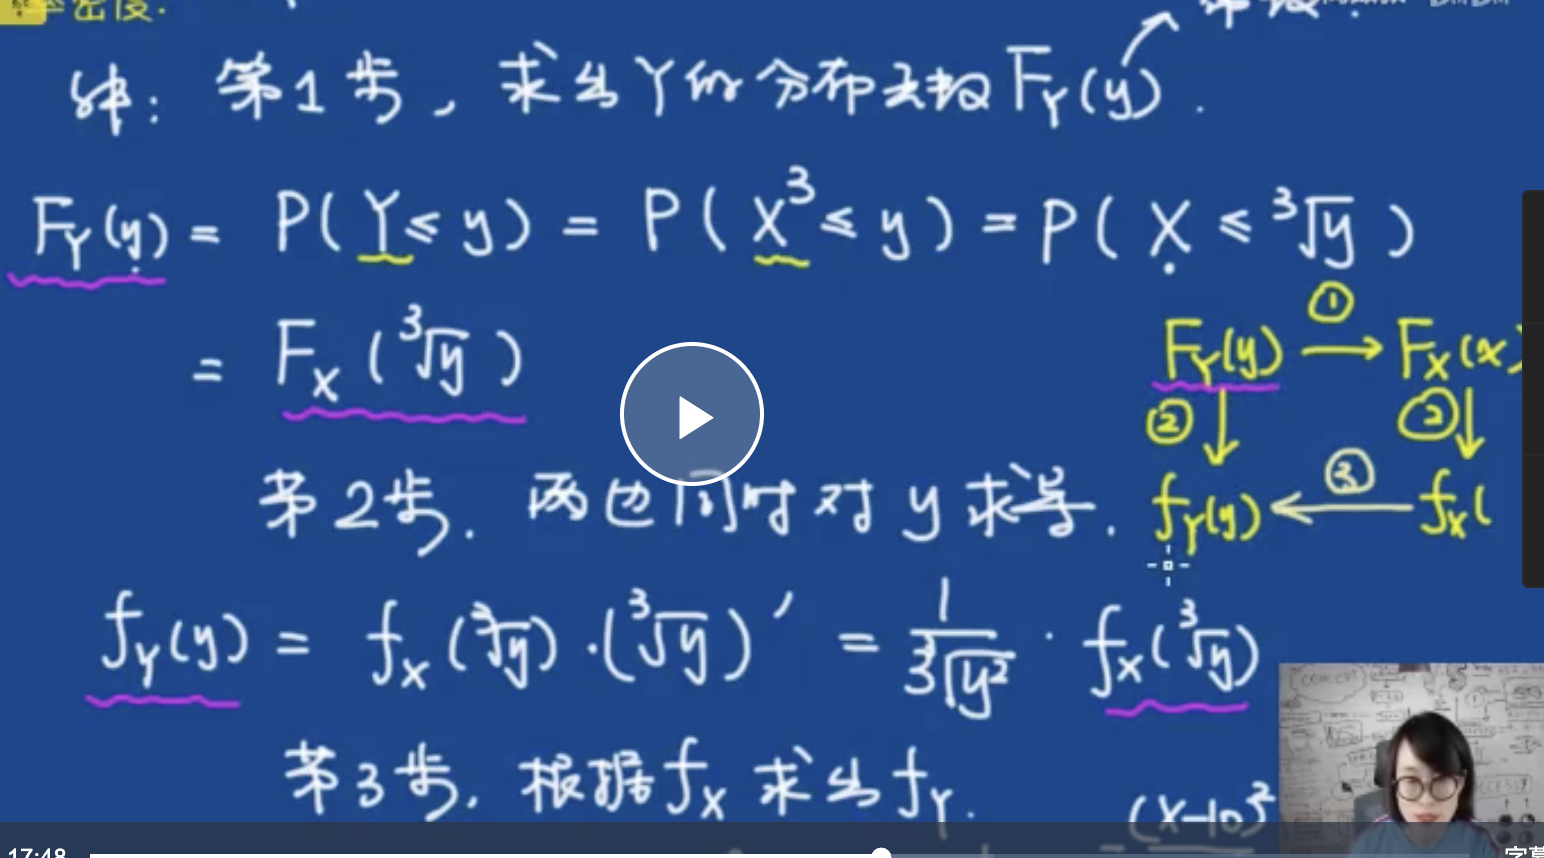 率密度.
解: 第1步, 求出Y的分布函数 F_Y(y).
F_Y(y) = P(Y ≤ y) = P(X³ ≤ y) = P(X ≤ ³√y)
= F_X(³√y)
① F_Y(y) → F_X(x)
② ②
第2步. 两边同时对y求导. f_Y(y) ←③ f_X(
f_Y(y) = f_X(³√y)·(³√y)′ = 1/(3 ³√y²) · f_X(³√y)
第3步, 根据f_X求出f_Y.
(x-10)²
17:48 字幕